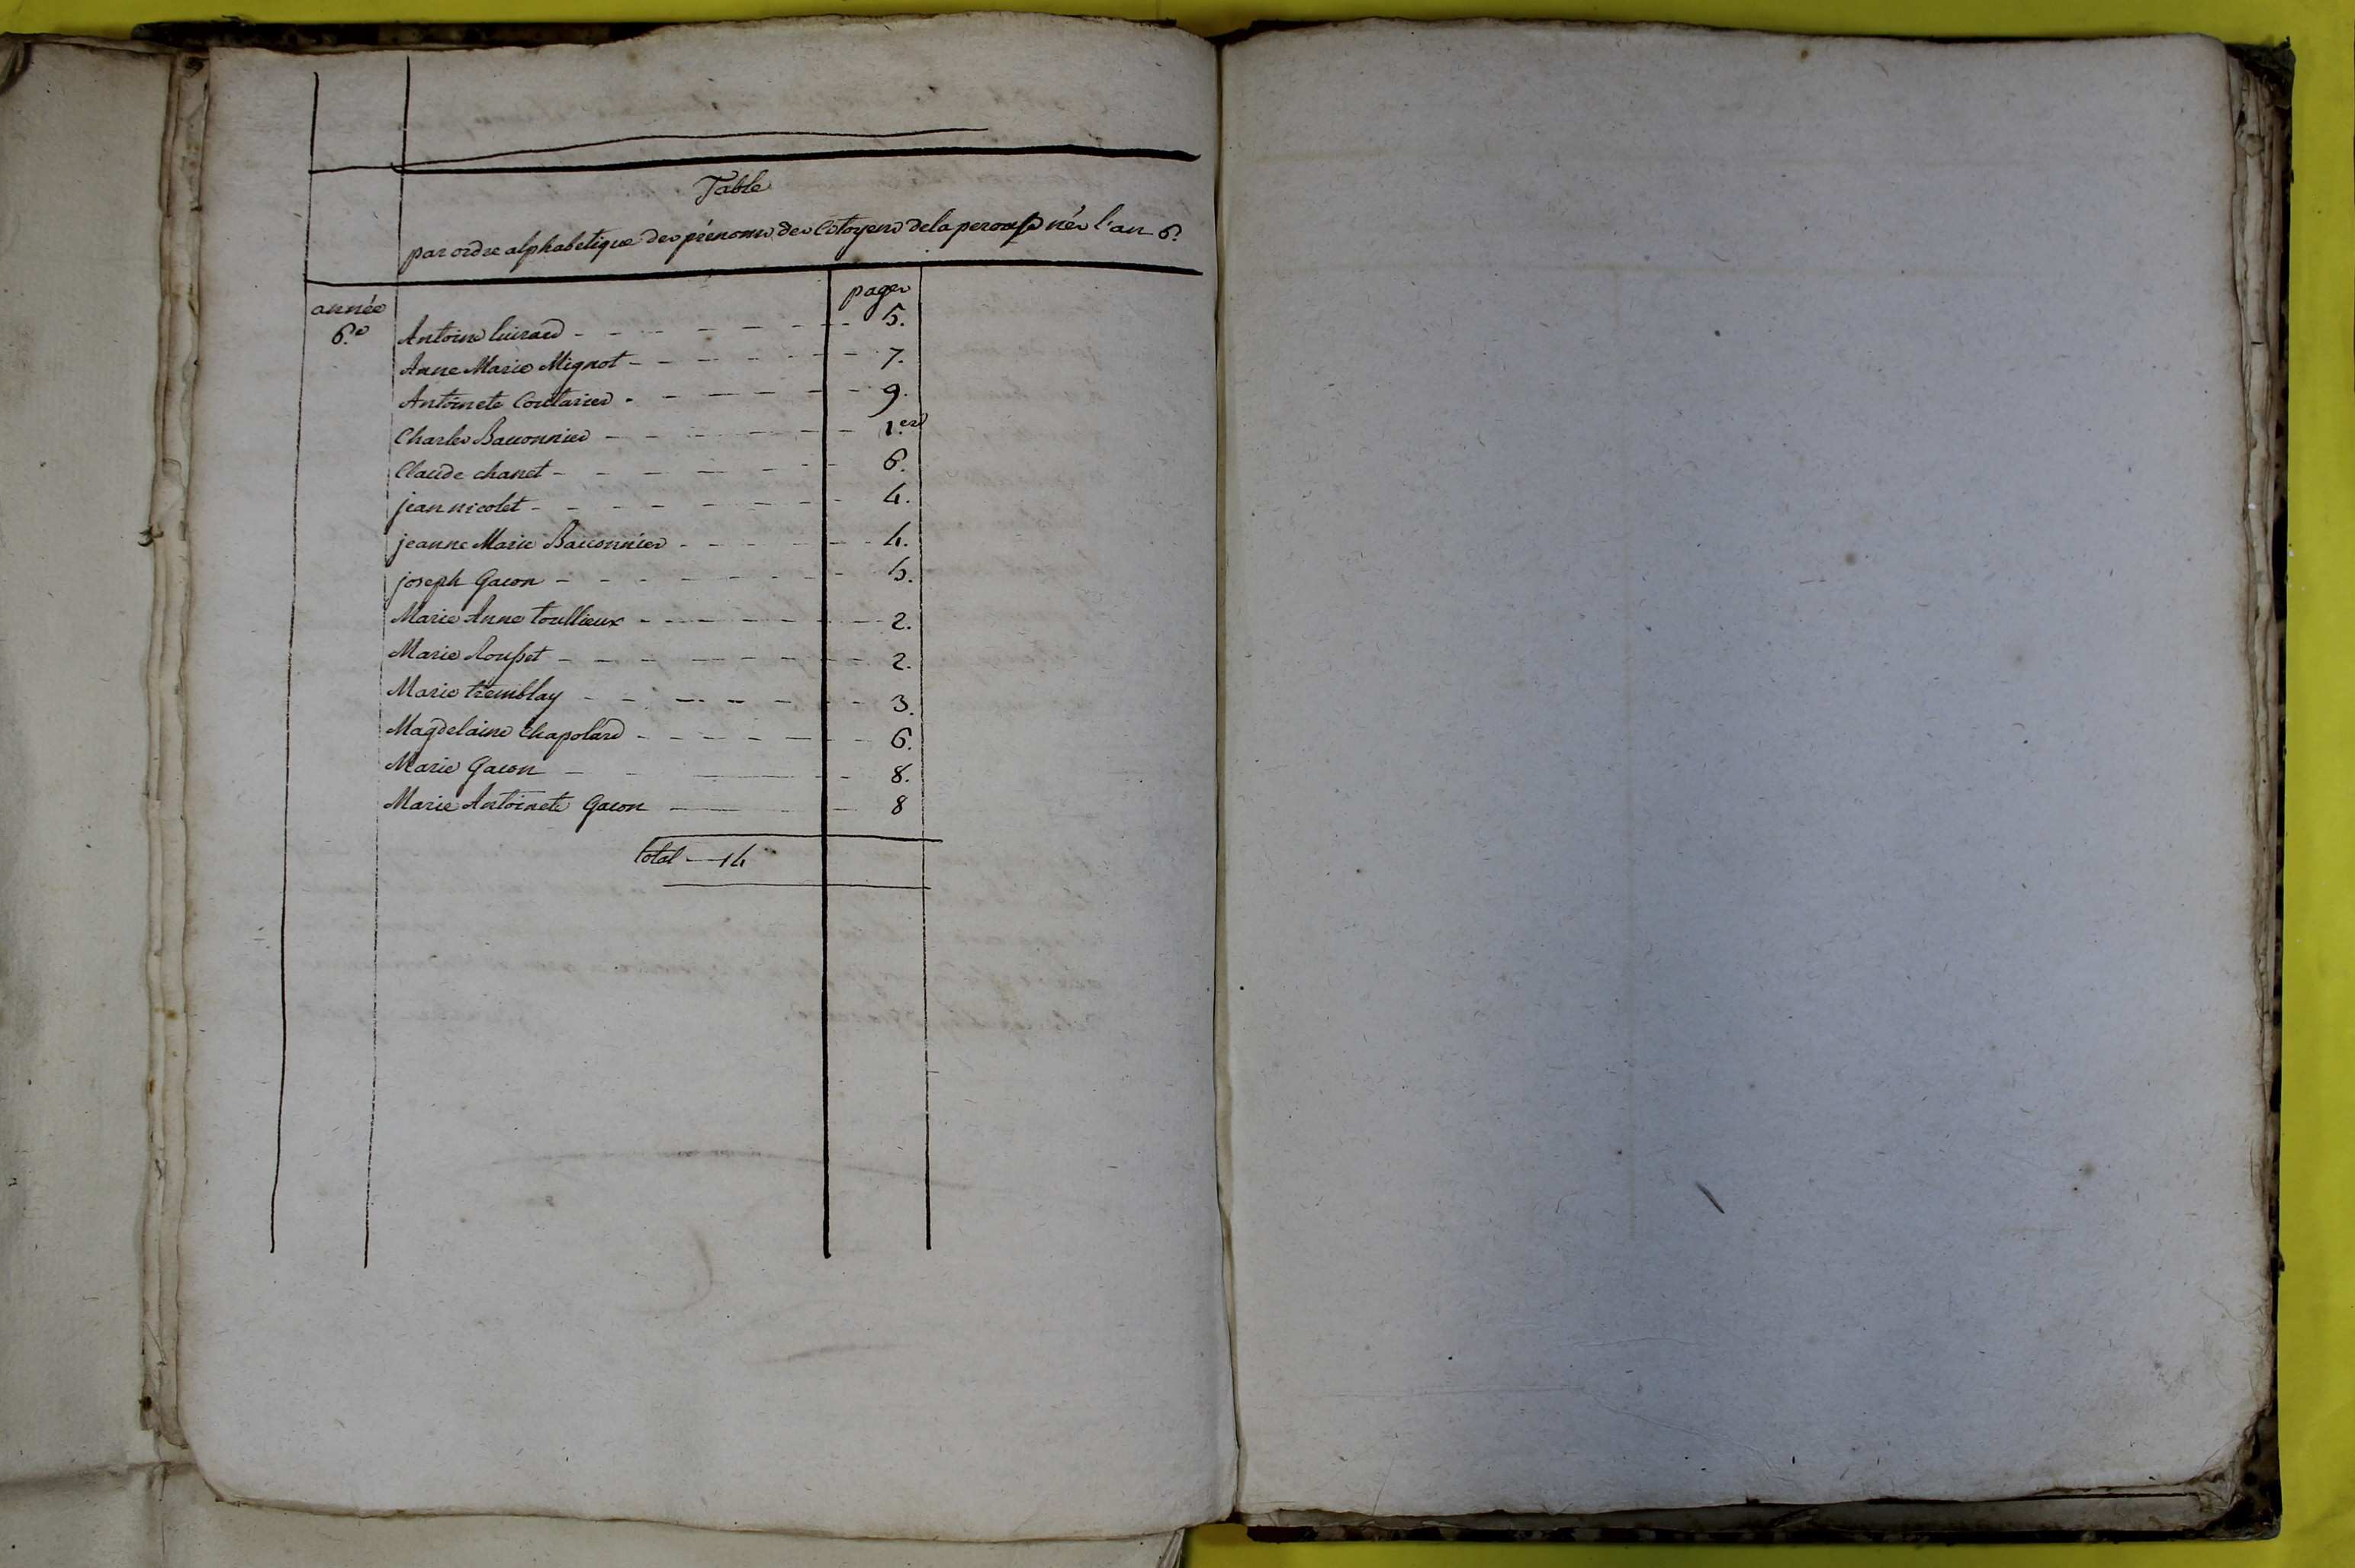 Table
par ordre alphabetique des prénoms des Citoyens de la perouse nés l'an 6.
année pages
6.e Antoine Guirard 5.
Anne Marie Mignot 7.
Antoinete Couturier 9.
Charles Bauonnier 1.er
Claude chanet 6.
jean nicolet 4.
jeanne Marie Bauonnier 4.
joseph Gacon 5.
Marie Anne toullieux 2.
Marie Rousset 2.
Marie tremblay 3.
Magdelaine Chapolard 6.
Marie Gacon 8.
Marie Antoinete Gacon 8
total 14